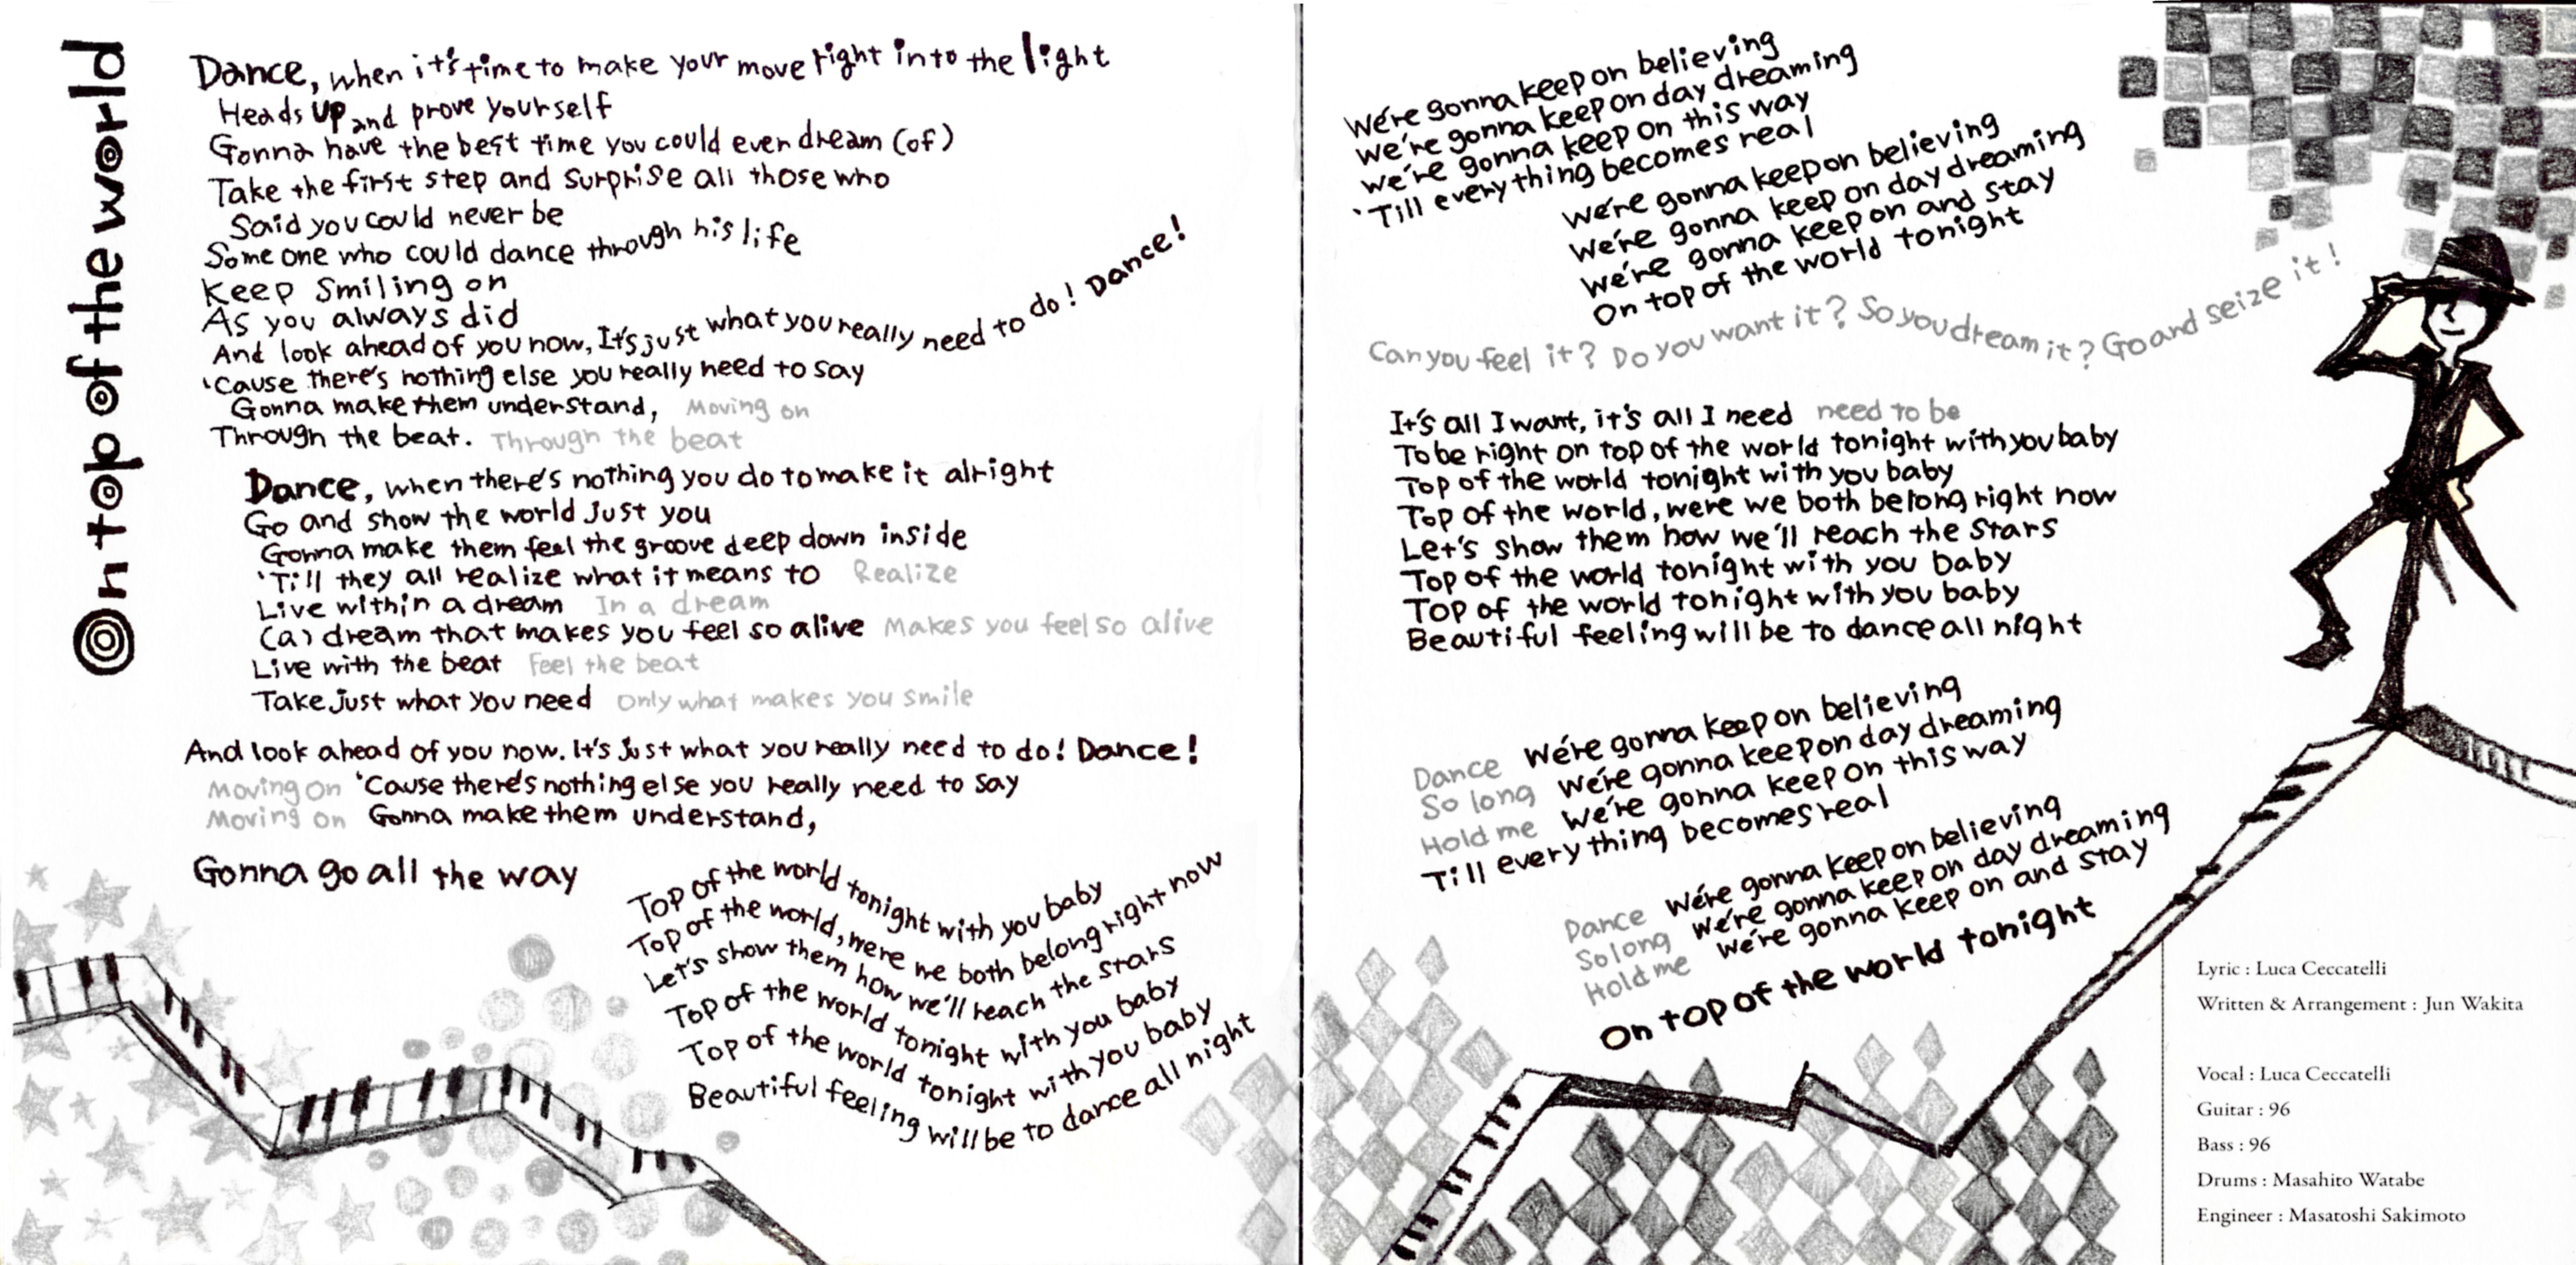 On top of the world
Dance, when it's time to make your move right into the light
Heads up and prove yourself
Gonna have the best time you could ever dream (of)
Take the first step and surprise all those who
Said you could never be
Some one who could dance through his life
Keep smiling on
As you always did
And look ahead of you now, It's just what you really need to do! Dance!
'Cause there's nothing else you really need to say
Gonna make them understand, Moving on
Through the beat. Through the beat
Dance, when there's nothing you do to make it alright
Go and show the world Just you
Gonna make them feel the groove deep down inside
'Till they all realize what it means to Realize
Live within a dream In a dream
(a) dream that makes you feel so alive Makes you feel so alive
Live with the beat Feel the beat
Take Just what you need Only what makes you smile
And look ahead of you now. It's Just what you really need to do! Dance!
Moving on 'Cause there's nothing else you really need to say
Moving on Gonna make them understand,
Gonna go all the way
Top of the world tonight with you baby
Top of the world, were we both belong right now
Let's show them how we'll reach the stars
Top of the world tonight with you baby
Top of the world tonight with you baby
Beautiful feeling will be to dance all night
We're gonna keep on believing
We're gonna keep on day dreaming
We're gonna keep on this way
'Till every thing becomes real
We're gonna keep on believing
We're gonna keep on day dreaming
We're gonna keep on and stay
On top of the world tonight
Can you feel it? Do you want it? So you dream it? Go and seize it!
It's all I want, it's all I need need to be
To be right on top of the world tonight with you baby
Top of the world tonight with you baby
Top of the world, were we both belong right now
Let's show them how we'll reach the stars
Top of the world tonight with you baby
Top of the world tonight with you baby
Beautiful feeling will be to dance all night
Dance We're gonna keep on believing
So long We're gonna keep on day dreaming
Hold me We're gonna keep on this way
Till every thing becomes real
Dance We're gonna keep on believing
So long We're gonna keep on day dreaming
Hold me We're gonna keep on and stay
On top of the world tonight
Lyric : Luca Ceccatelli
Written & Arrangement : Jun Wakita
Vocal : Luca Ceccatelli
Guitar : 96
Bass : 96
Drums : Masahito Watabe
Engineer : Masatoshi Sakimoto